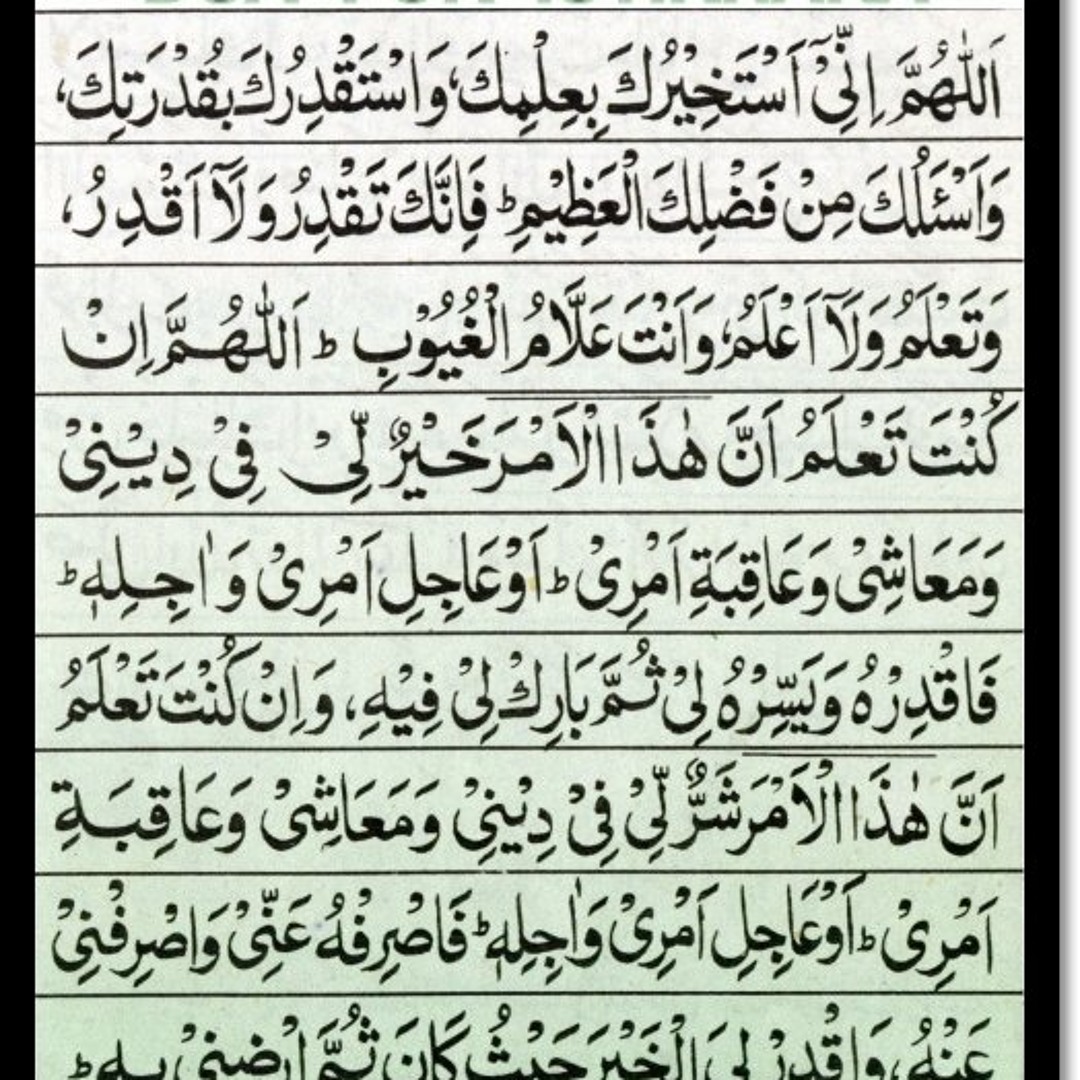 اَللّٰهُمَّ اِنِّیْۤ اَسْتَخِیْرُكَ بِعِلْمِكَ، وَاَسْتَقْدِرُكَ بِقُدْرَتِكَ،
وَاَسْئَلُكَ مِنْ فَضْلِكَ الْعَظِیْمِ ؕ فَاِنَّكَ تَقْدِرُ وَلَاۤ اَقْدِرُ،
وَتَعْلَمُ وَلَاۤ اَعْلَمُ، وَاَنْتَ عَلَّامُ الْغُیُوْبِ ؕ اَللّٰهُمَّ اِنْ
كُنْتَ تَعْلَمُ اَنَّ هٰذَا الْاَمْرَ خَیْرٌ لِّیْ فِیْ دِیْنِیْ
وَمَعَاشِیْ وَعَاقِبَةِ اَمْرِیْ ؕ اَوْعَاجِلِ اَمْرِیْ وَاٰجِلِهٖ ؕ
فَاقْدِرْهُ وَیَسِّرْهُ لِیْ ثُمَّ بَارِكْ لِیْ فِیْهِ، وَاِنْ كُنْتَ تَعْلَمُ
اَنَّ هٰذَا الْاَمْرَ شَرٌّ لِّیْ فِیْ دِیْنِیْ وَمَعَاشِیْ وَعَاقِبَةِ
اَمْرِیْ ؕ اَوْعَاجِلِ اَمْرِیْ وَاٰجِلِهٖ ؕ فَاصْرِفْهُ عَنِّیْ وَاصْرِفْنِیْ
عَنْهُ، وَاقْدِرْ لِیَ الْخَیْرَ حَیْثُ كَانَ ثُمَّ ارْضِنِیْ بِهٖ ؕ